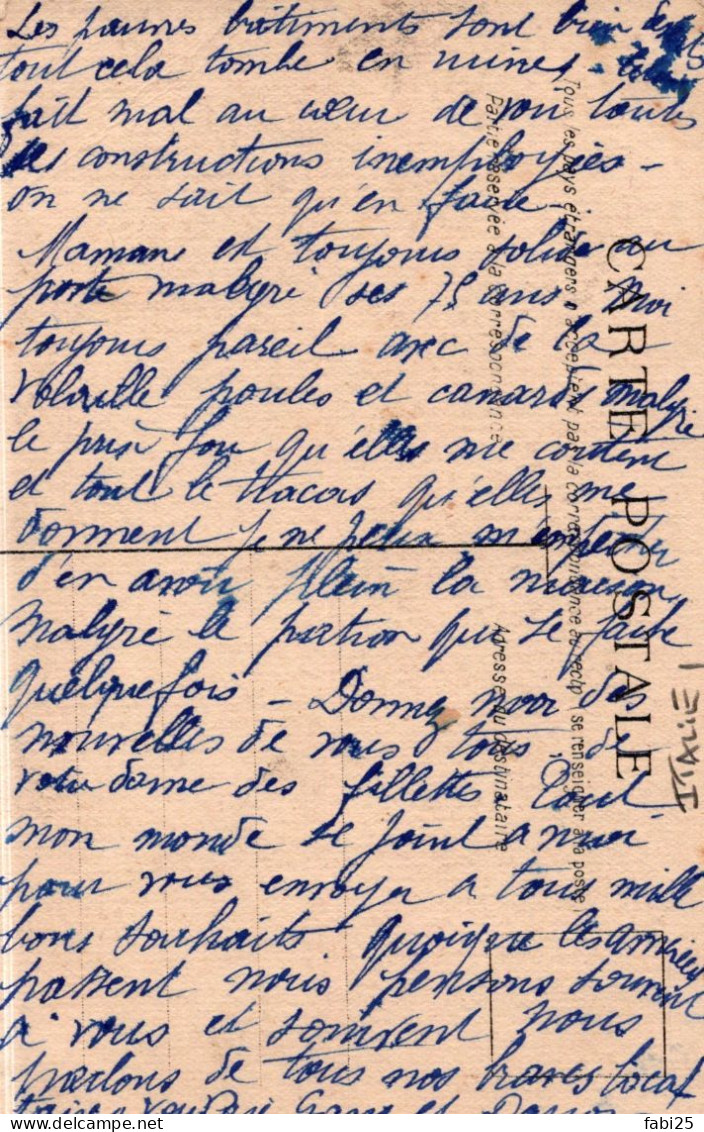 Les pauvres bâtiments sont bien
tout cela tombe en ruines
fait mal au cœur de voir toutes
les constructions inemployées –
on ne sait qu'en faire –
Maman est toujours solide au
poste malgré ses 75 ans Moi
toujours pareil avec de la
volaille poules et canards malgré
le prix fou qu'elles me coûtent
et tout le tracas qu'elles me
donnent je ne peux
d'en avoir plein la maison
malgré le que se faire
quelquefois – Donnez moi des
nouvelles de vous tous de
votre dame des fillettes Tout
mon monde se joint a moi
pour vous envoyer a tous mille
bons souhaits quoique les années
passent nous pensons souvent
à vous et souvent nous
parlons de tous nos braves locat
et
CARTE POSTALE
Tous les pays étrangers n'acceptent pas la correspondance au recto (se renseigner à la poste)
Partie réservée à la correspondance
Adresse du destinataire
ITALIE
fabi25